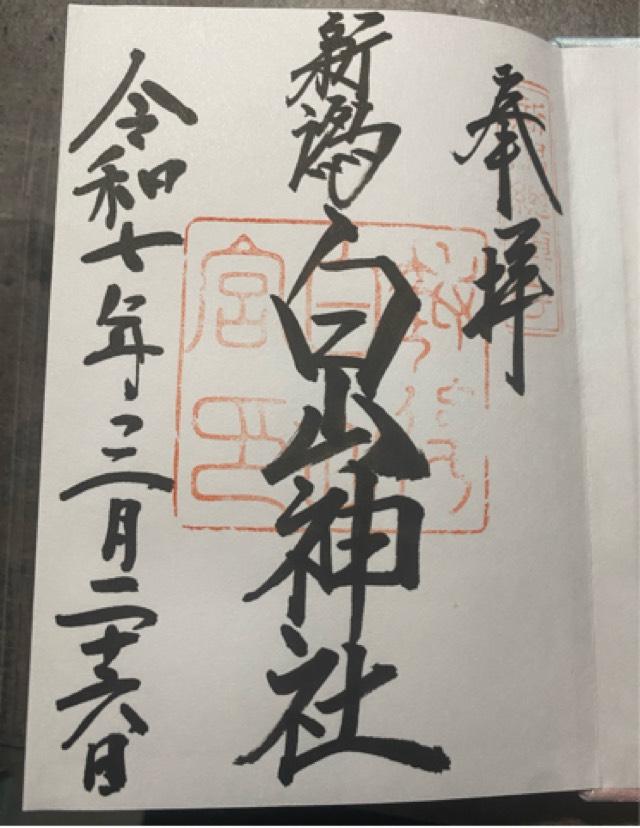 奉拝
新潟白山神社
令和七年三月二十六日